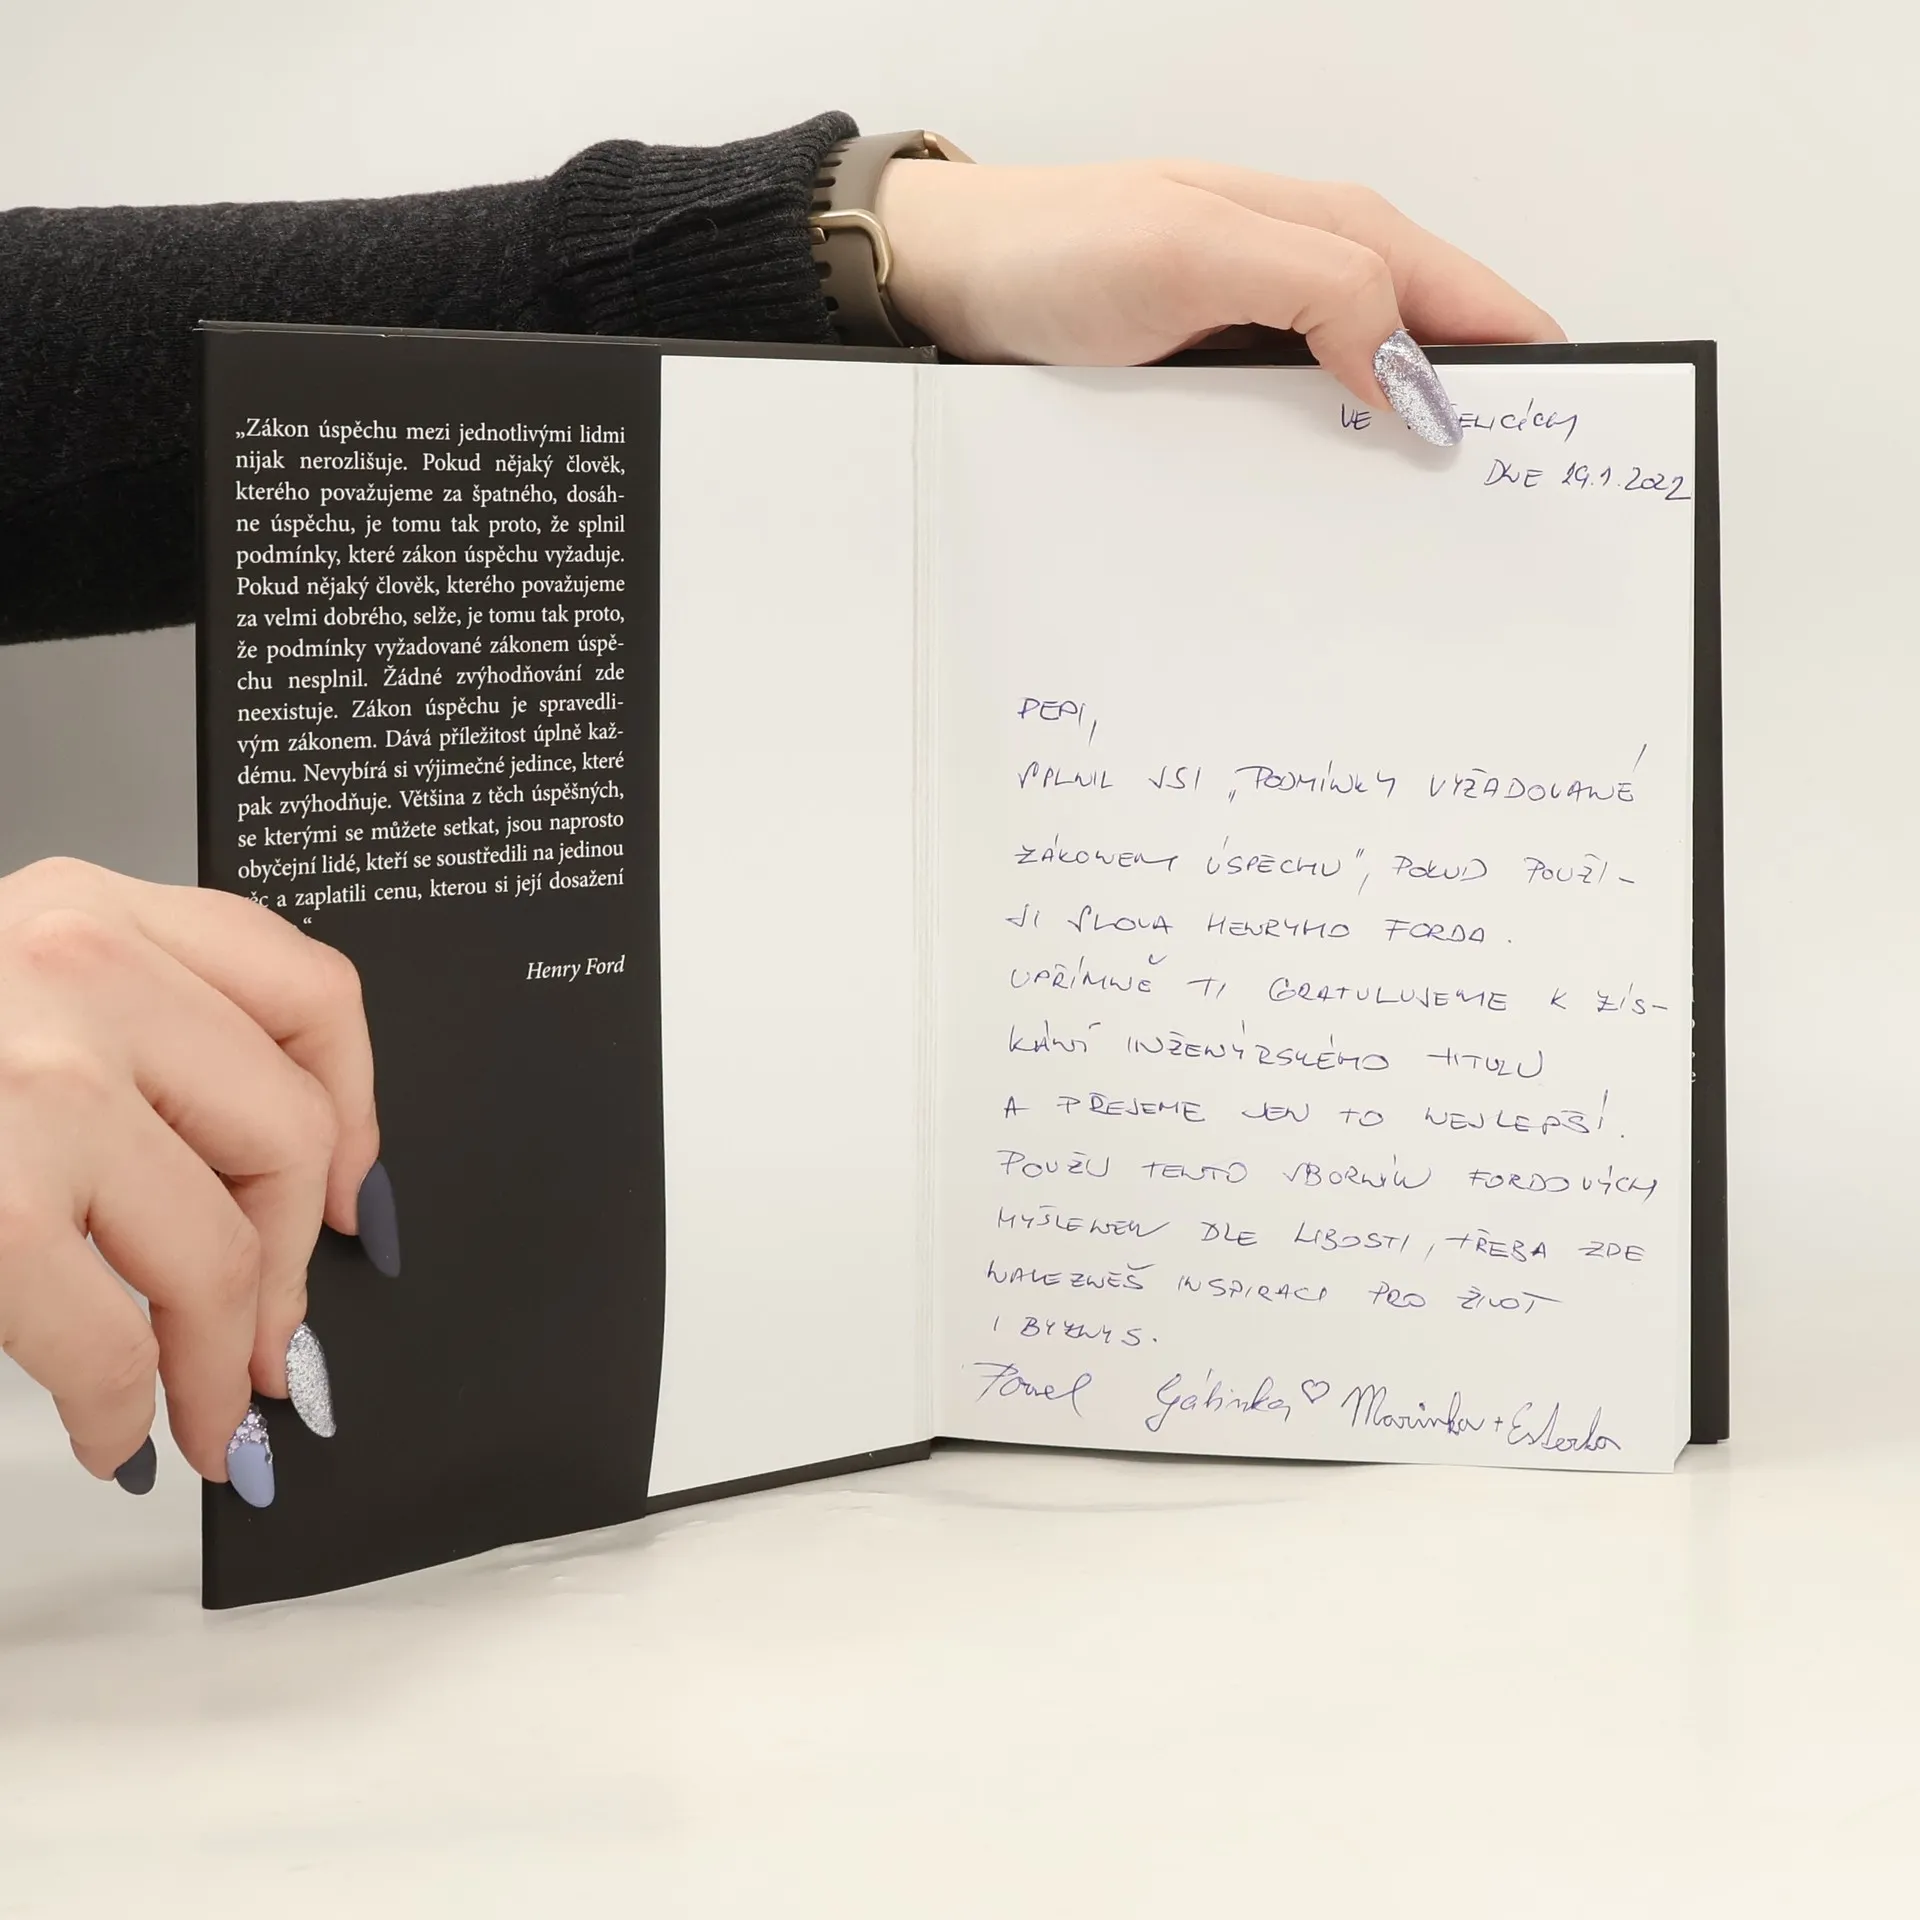 „Zákon úspěchu mezi jednotlivými lidmi
nijak nerozlišuje. Pokud nějaký člověk,
kterého považujeme za špatného, dosáh-
ne úspěchu, je tomu tak proto, že splnil
podmínky, které zákon úspěchu vyžaduje.
Pokud nějaký člověk, kterého považujeme
za velmi dobrého, selže, je tomu tak proto,
že podmínky vyžadované zákonem úspě-
chu nesplnil. Žádné zvýhodňování zde
neexistuje. Zákon úspěchu je spravedli-
vým zákonem. Dává příležitost úplně kaž-
dému. Nevybírá si výjimečné jedince, které
pak zvýhodňuje. Většina z těch úspěšných,
se kterými se můžete setkat, jsou naprosto
obyčejní lidé, kteří se soustředili na jedinou
a zaplatili cenu, kterou si její dosažení
“
Henry Ford
VE ELICÍCH
DNE 29.1.2022
PEPI,
SPLNIL JSI „PODMÍNKY VYŽADOVANÉ
ZÁKONEM ÚSPĚCHU“, POKUD POUŽI-
JI SLOVA HENRYHO FORDA.
UPŘÍMNĚ TI GRATULUJEME K ZÍS-
KÁNÍ INŽENÝRSKÉHO TITULU
A PŘEJEME JEN TO NEJLEPŠÍ.
POUŽIJ TENTO SBORNÍK FORDOVÝCH
MYŠLENEK DLE LIBOSTI, TŘEBA ZDE
NALEZNEŠ INSPIRACI PRO ŽIVOT
I BYZNYS.
Pavel Gábinka ♡ Marinka + Esterka